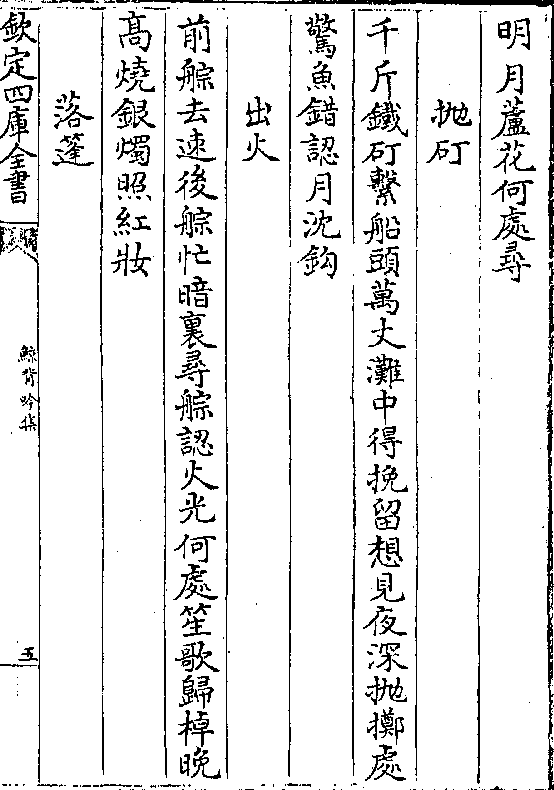 明月蘆花何處尋
抛矴
千斤鐵矴繫船頭萬丈灘中得挽留想見夜深抛擲處
驚魚錯認月沈鈎
出火
前䑸去速後䑸忙暗裏尋䑸認火光何處笙歌歸棹晚
高燒銀燭照紅妝
落篷
欽定四庫全書
鯨背吟集
五